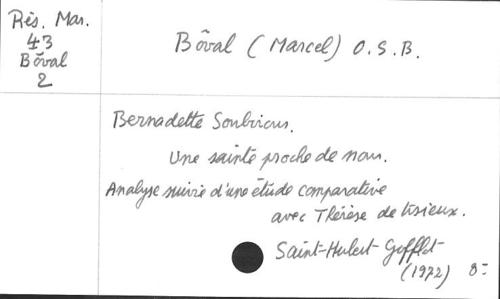 Rès. Mar.
43
Bôval
2
Bôval (Marcel) O.S.B.
Bernadette Soubirous.
Une sainte proche de nous.
Analyse suivie d'une étude comparative
avec Thérèse de Lisieux.
Saint-Hubert
(1972) 8-